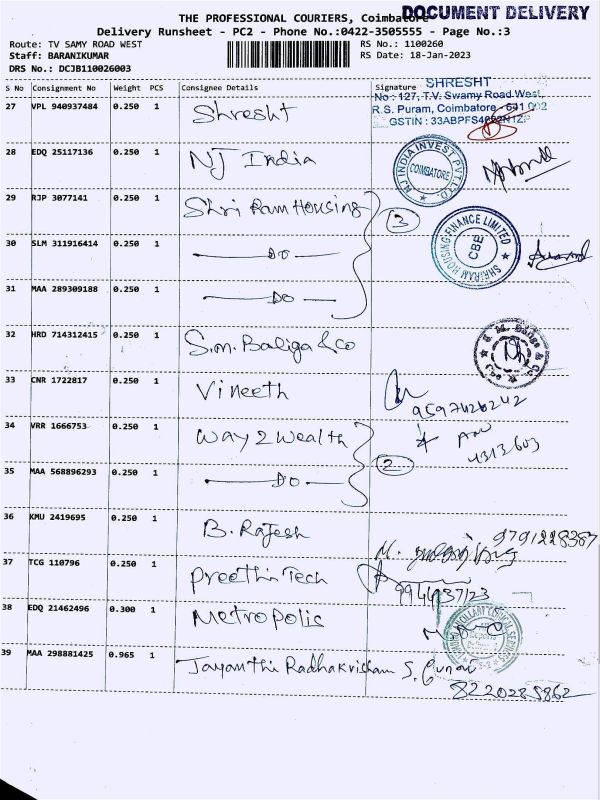 THE PROFESSIONAL COURIERS, Coimbatore
DOCUMENT DELIVERY
Delivery Runsheet - PC2 - Phone No.:0422-3505555 - Page No.:3
Route: TV SAMY ROAD WEST
RS No.: 1100260
Staff: BARANIKUMAR
RS Date: 18-Jan-2023
DRS No.: DCJB110026003
S No Consignment No Weight PCS Consignee Details Signature
SHRESHT
No : 127, T.V. Swamy Road West,
R.S. Puram, Coimbatore - 641 002
GSTIN : 33ABPFS4692N1ZP
27 VPL 940937484 0.250 1 Shresht
28 EDQ 25117136 0.250 1 NJ India
NJ INDIA INVEST PVT LTD.
COIMBATORE
29 RJP 3077141 0.250 1 Shri Ram Housing 3
SHRIRAM HOUSING FINANCE LIMITED
CBE
30 SLM 311916414 0.250 1 DO
31 MAA 289309188 0.250 1 DO
32 HRD 714312415 0.250 1 S.M. Baliga & Co
33 CNR 1722817 0.250 1 Vineeth
9597426242
34 VRR 1666753 0.250 1 Way 2 Wealth
4313603
35 MAA 568896293 0.250 1 DO 2
36 KMU 2419695 0.250 1 B. Rajesh
9791228387
37 TCG 110796 0.250 1 Preethi Tech
9944937123
38 EDQ 21462496 0.300 1 Metropolis
39 MAA 298881425 0.965 1 Jayanthi Radhakrishnan S. Gunar
8220285862